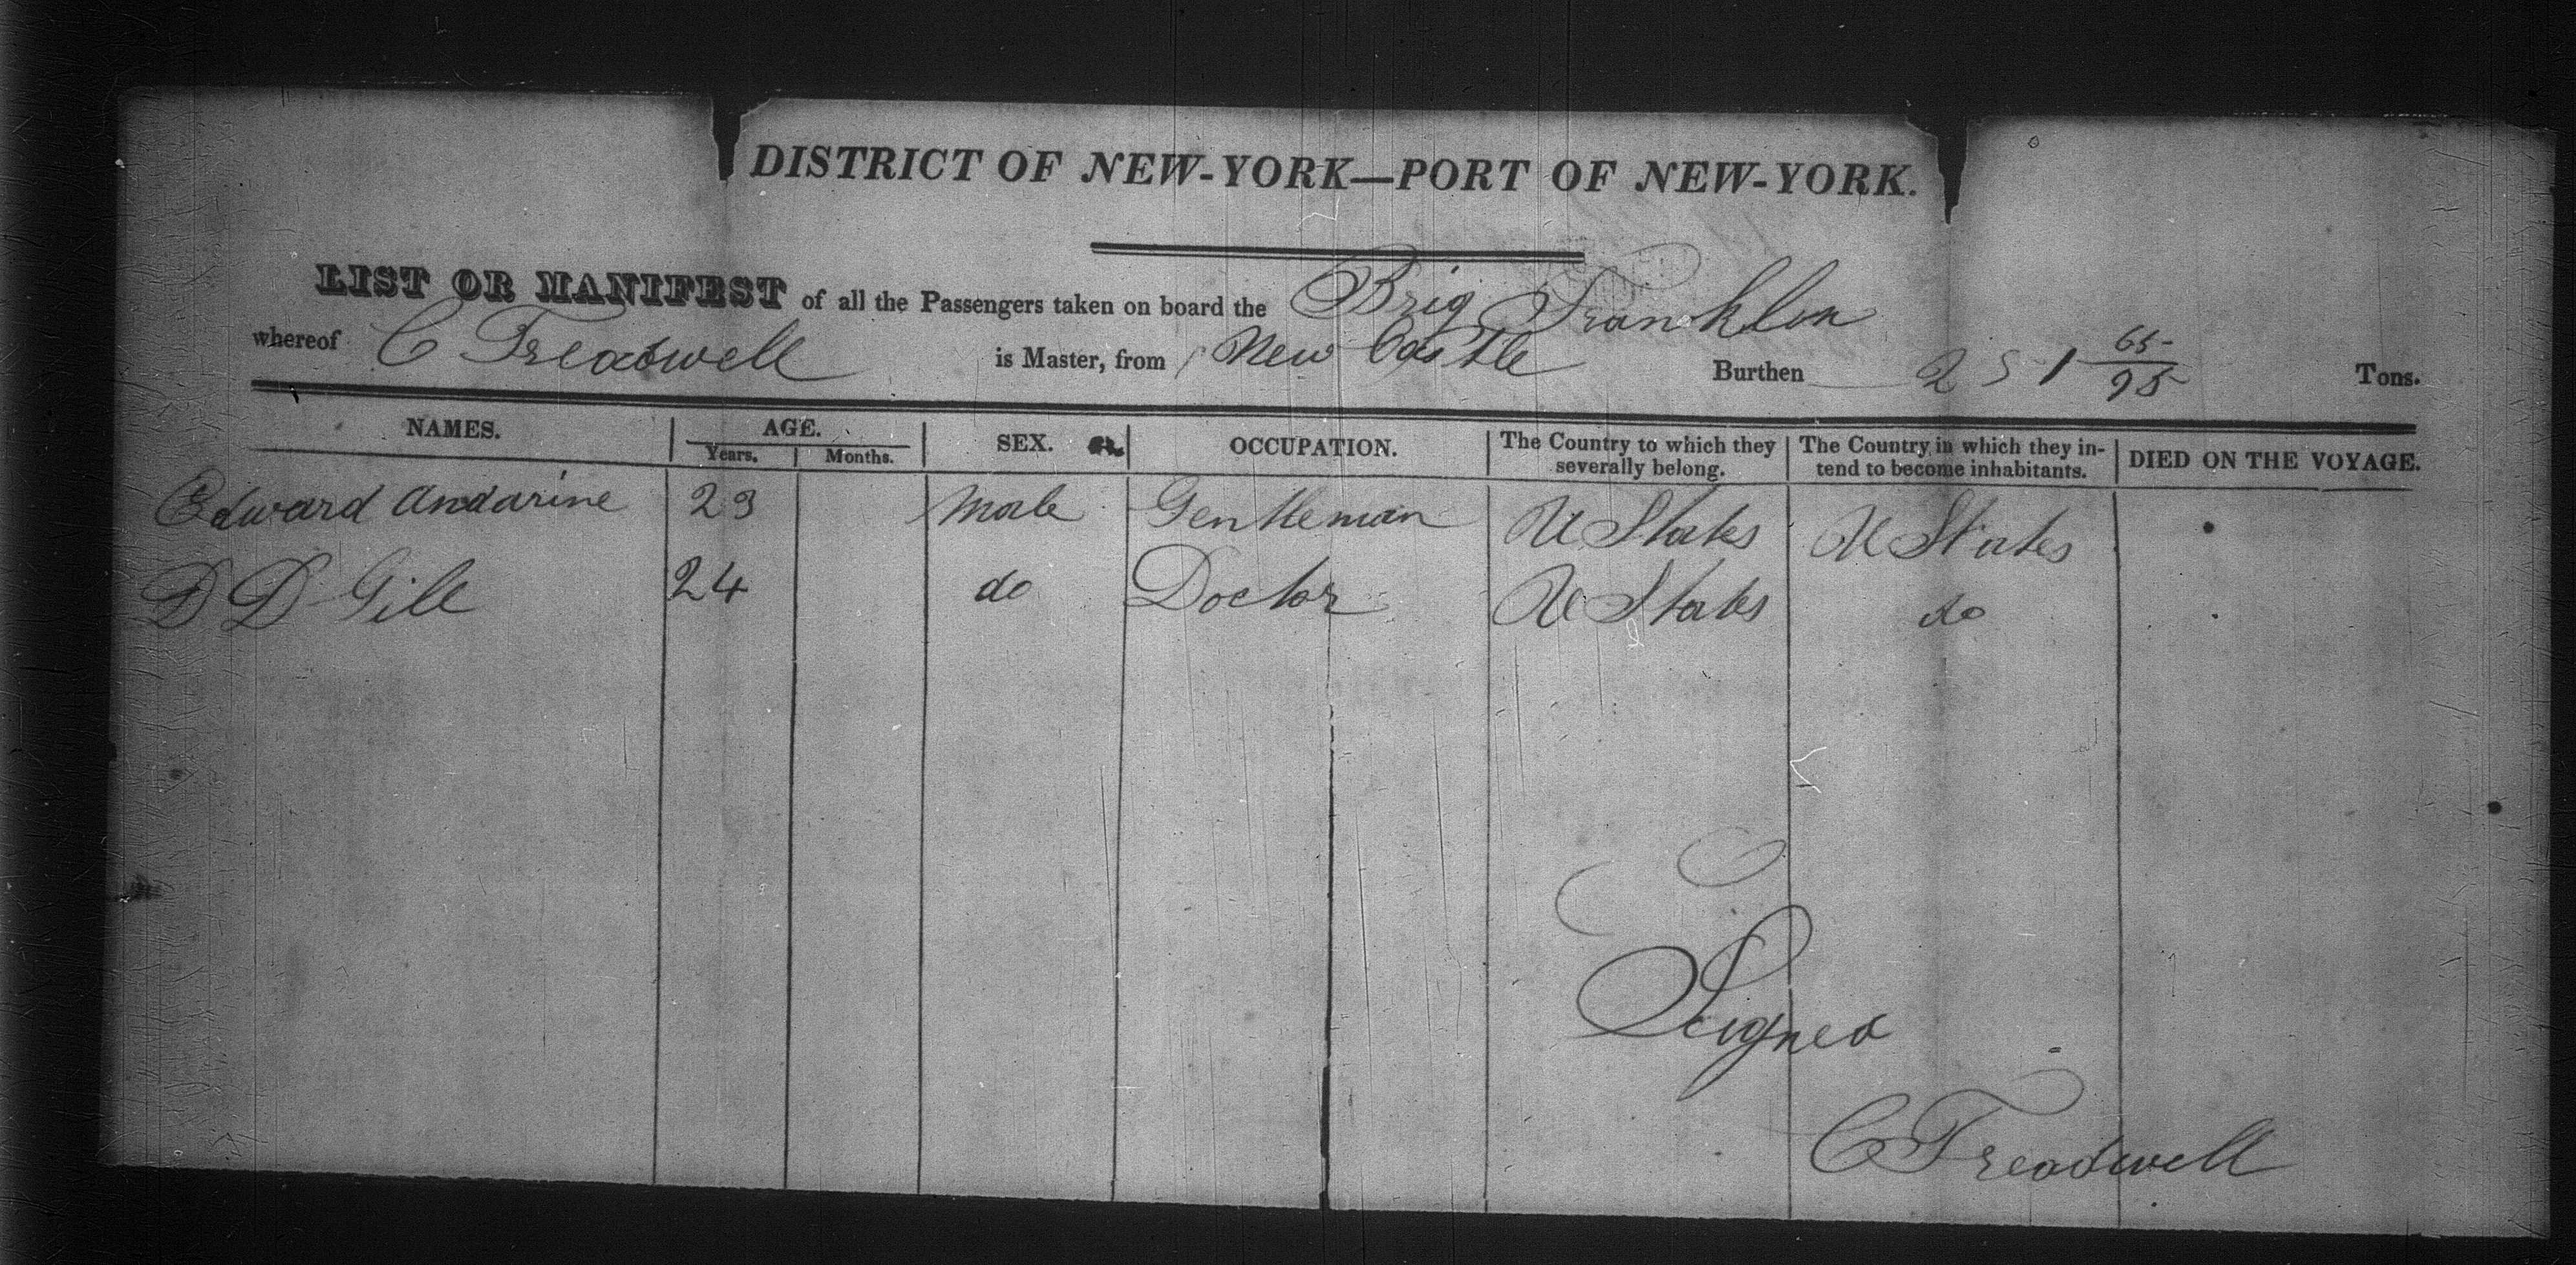 DISTRICT OF NEW-YORK—PORT OF NEW-YORK.
LIST OR MANIFEST of all the Passengers taken on board the Brig Franklin
whereof C Treadwell is Master, from New Castle Burthen 251 65/95 Tons.
NAMES. AGE. SEX. OCCUPATION. The Country to which they severally belong. The Country in which they intend to become inhabitants. DIED ON THE VOYAGE.
Years. Months.
Edward Andarine 23 Male Gentleman U States U States
D D Gile 24 do Doctor U States do
Seigned
C Treadwell